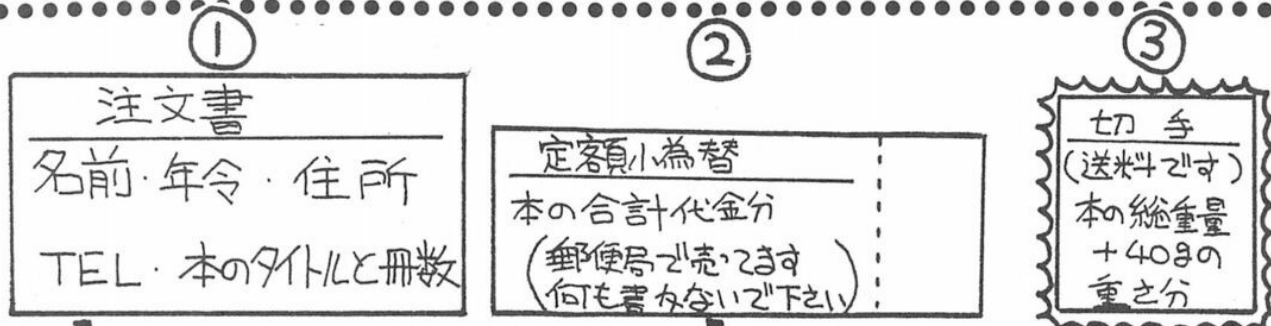 ①
注文書
名前・年令・住所
TEL・本のタイトルと冊数
②
定額小為替
本の合計代金分
(郵便局で売ってます
何も書かないで下さい)
③
切手
(送料です)
本の総重量
+40gの
重さ分